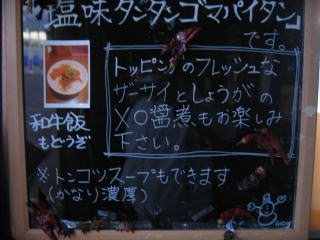 「塩味タンタンゴマパイタン」
です。
トッピングのフレッシュな
ザーサイとしょうがの
XO醤煮もお楽しみ
下さい。
和牛飯
もどうぞ
※トンコツスープもできます
(かなり濃厚)